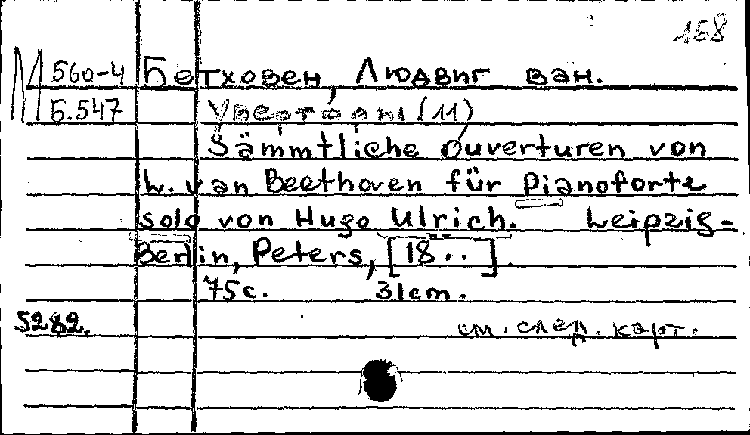 158
М 560-4 Бетховен, Людвиг ван.
Б.547 Увертюры (11)
Sämmtliche Ouverturen von
L. van Beethoven für Pianoforte
solo von Hugo Ulrich. Leipzig-
Berlin, Peters, [18..].
75 с. 31cm.
5282. см. след. карт.